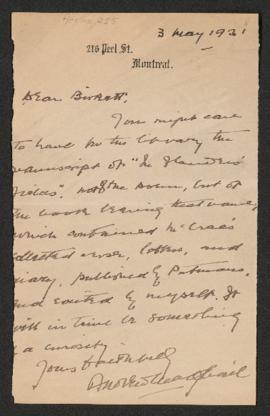 3 May 1921
216 Peel St.
Montreal.
Dear Birkett.
You might care
to have for the library the
manuscript of "In Flanders
Fields". not the poem, but of
the book bearing that name,
which contained McCrae's
collected verse, letters, and
diary, published by Putnams,
and edited by myself. It
will in time be something
of a curiosity.
Yours faithfully
Andrew Macphail